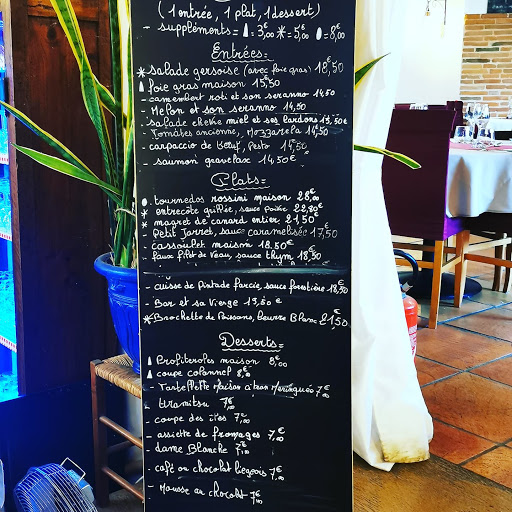 ( 1 entrée, 1 plat, 1 dessert)
- suppléments = 3,00 * = 5,00 = 8,00
Entrées =
* salade gersoise (avec foie gras) 18,50
foie gras maison 15,50
- camembert roti et son seranno 14,50
- Melon et son seranno 14,50
- salade chèvre miel et ses lardons 13,50€
- Tomates ancienne, Mozzarela 14,50
- carpaccio de Bœuf, pesto 14,50
- saumon gravelax 14,50€
Plats =
tournedos rossini maison 28,00
* entrecôte grillée, sauce 22,80€
* magret de canard entier 21,50
Petit Jarret, sauce caramelisée 17,50
- cassoulet maison 18,50€
faux filet de veau, sauce thym 18,50
- cuisse de pintade farcie, sauce forestière 18,50
- Bar et sa Vierge 17,50€
* Brochette de Poissons, beurre Blanc 21,50€
Desserts =
Profiteroles maison 8,00
coupe colonnel 8,00€
- Tartelette Maison citron Meringuée 7€
- tiramisu 7€
- coupe des îles 7,00€
- assiette de fromages 7,00€
- dame Blanche 7,00€
- café ou chocolat liegeois 7,00€
- Mousse au chocolat 7,00€